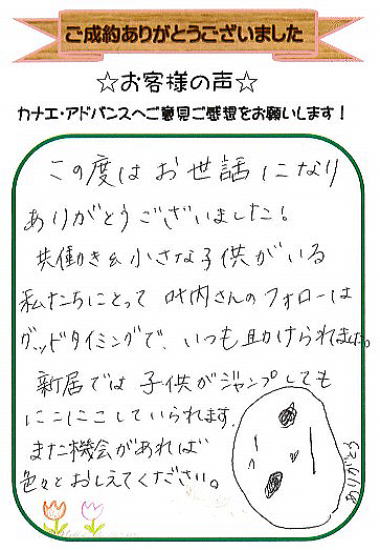 ご成約ありがとうございました
☆お客様の声☆
カナエ・アドバンスへご意見ご感想をお願いします!
この度はお世話になり
ありがとうございました!
共働き&小さな子供がいる
私たちにとって 叶内さんのフォローは
グッドタイミングで、いつも助けられました。
新居では子供がジャンプしても
にこにこしていられます。
また機会があれば
色々とおしえてください。